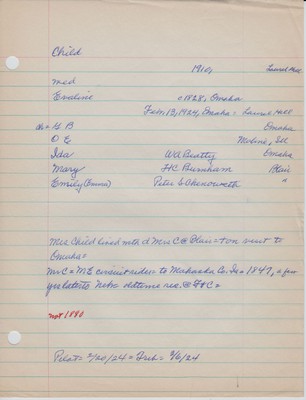 Child
1910, Laurel Hill
med
Eveline c1828, Omaha
Feb. 13, 1924, Omaha = Laurel Hill
ch = G B Omaha
O E Moline, Ill
Ida W A Beatty Omaha
Mary H C Burnham Blair
Emily (Emma) Peter S Chenoweth "
Mrs Child lived with d Mrs C @ Blair = ton went to
Omaha =
Mr C = M E circuit rider = to Mahaska Co. Ia = 1847, a few
yrs later to Nebr oldtime res. @ Ft C =
not 1890
Pilot = 2/20/24 = Trib = 3/6/24